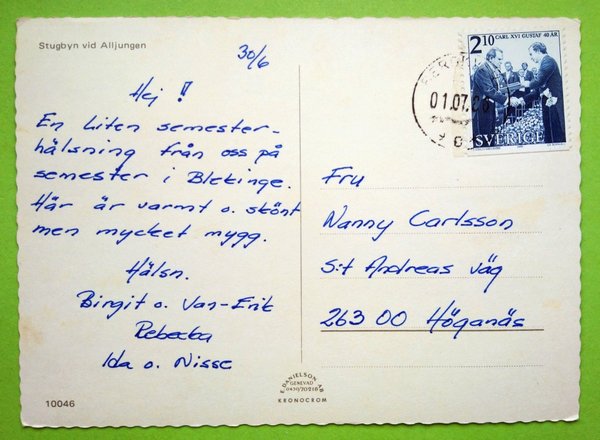 Stugbyn vid Alljungen
30/6
Hej !
En liten semester-
hälsning från oss på
semester i Blekinge.
Här är varmt o. skönt
men mycket mygg.
Hälsn.
Birgit o. Jan-Erik
Rebecka
Ida o. Nisse
10046
E. DANIELSON AB
GENEVAD
0430/70218
KRONOCROM
01.07.
2.10 CARL XVI GUSTAF 40 ÅR
SVERIGE
Fru
Nanny Carlsson
S:t Andreas väg
263 00 Höganäs